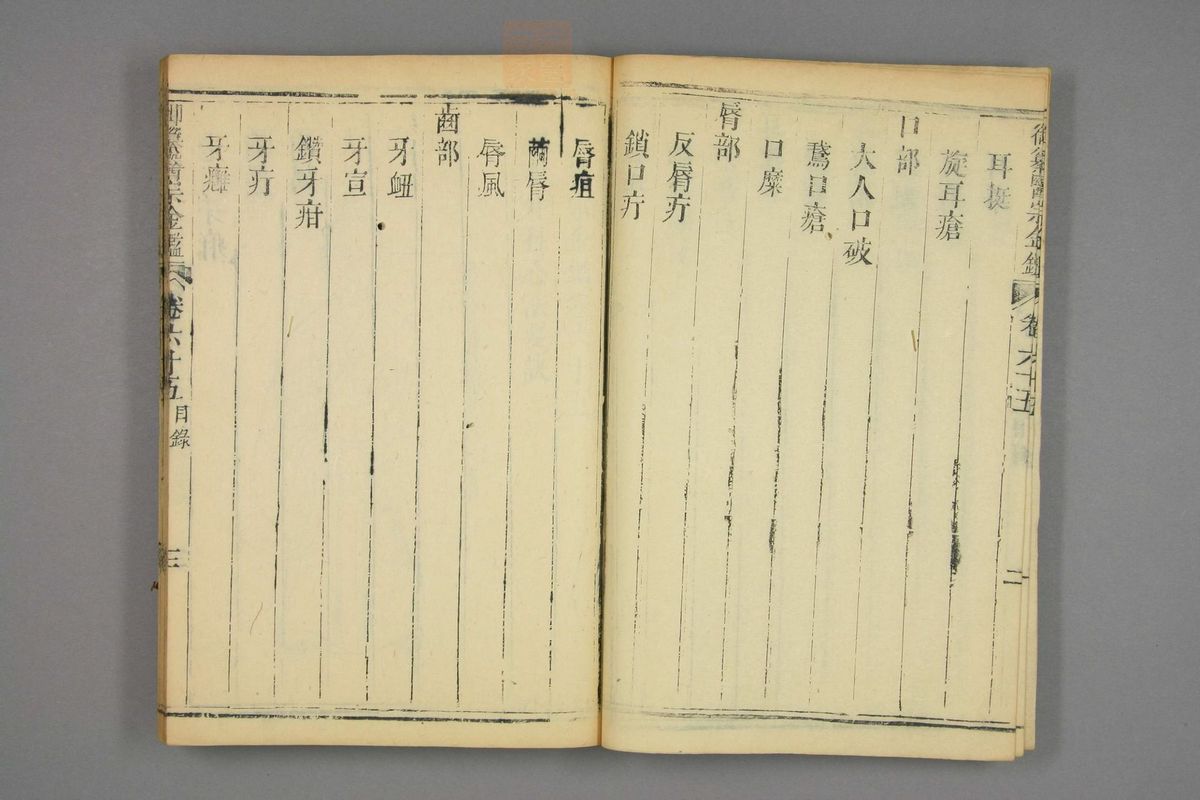 御纂醫宗金鑑 卷六十五 二
耳挺
旋耳瘡
口部
大人口破
鵞口瘡
口糜
脣部
反脣疔
鎖口疔
脣疽
繭脣
脣風
齒部
牙衄
牙宣
鑽牙疳
牙疔
牙癰
御纂醫宗金鑑 卷六十五 目錄 三